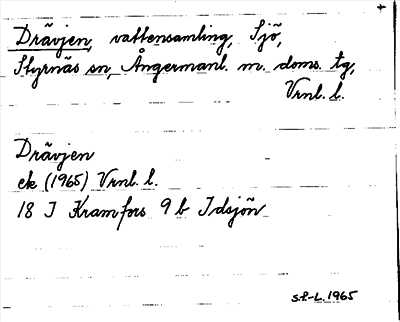 +
Drävjen, vattensamling, Sjö,
Styrnäs sn, Ångermanl. m. doms. tg,
Vrnl. l.
Drävjen
ek (1965) Vrnl. l.
18 I Kramfors 9 b Idsjön
S.P.-L. 1965